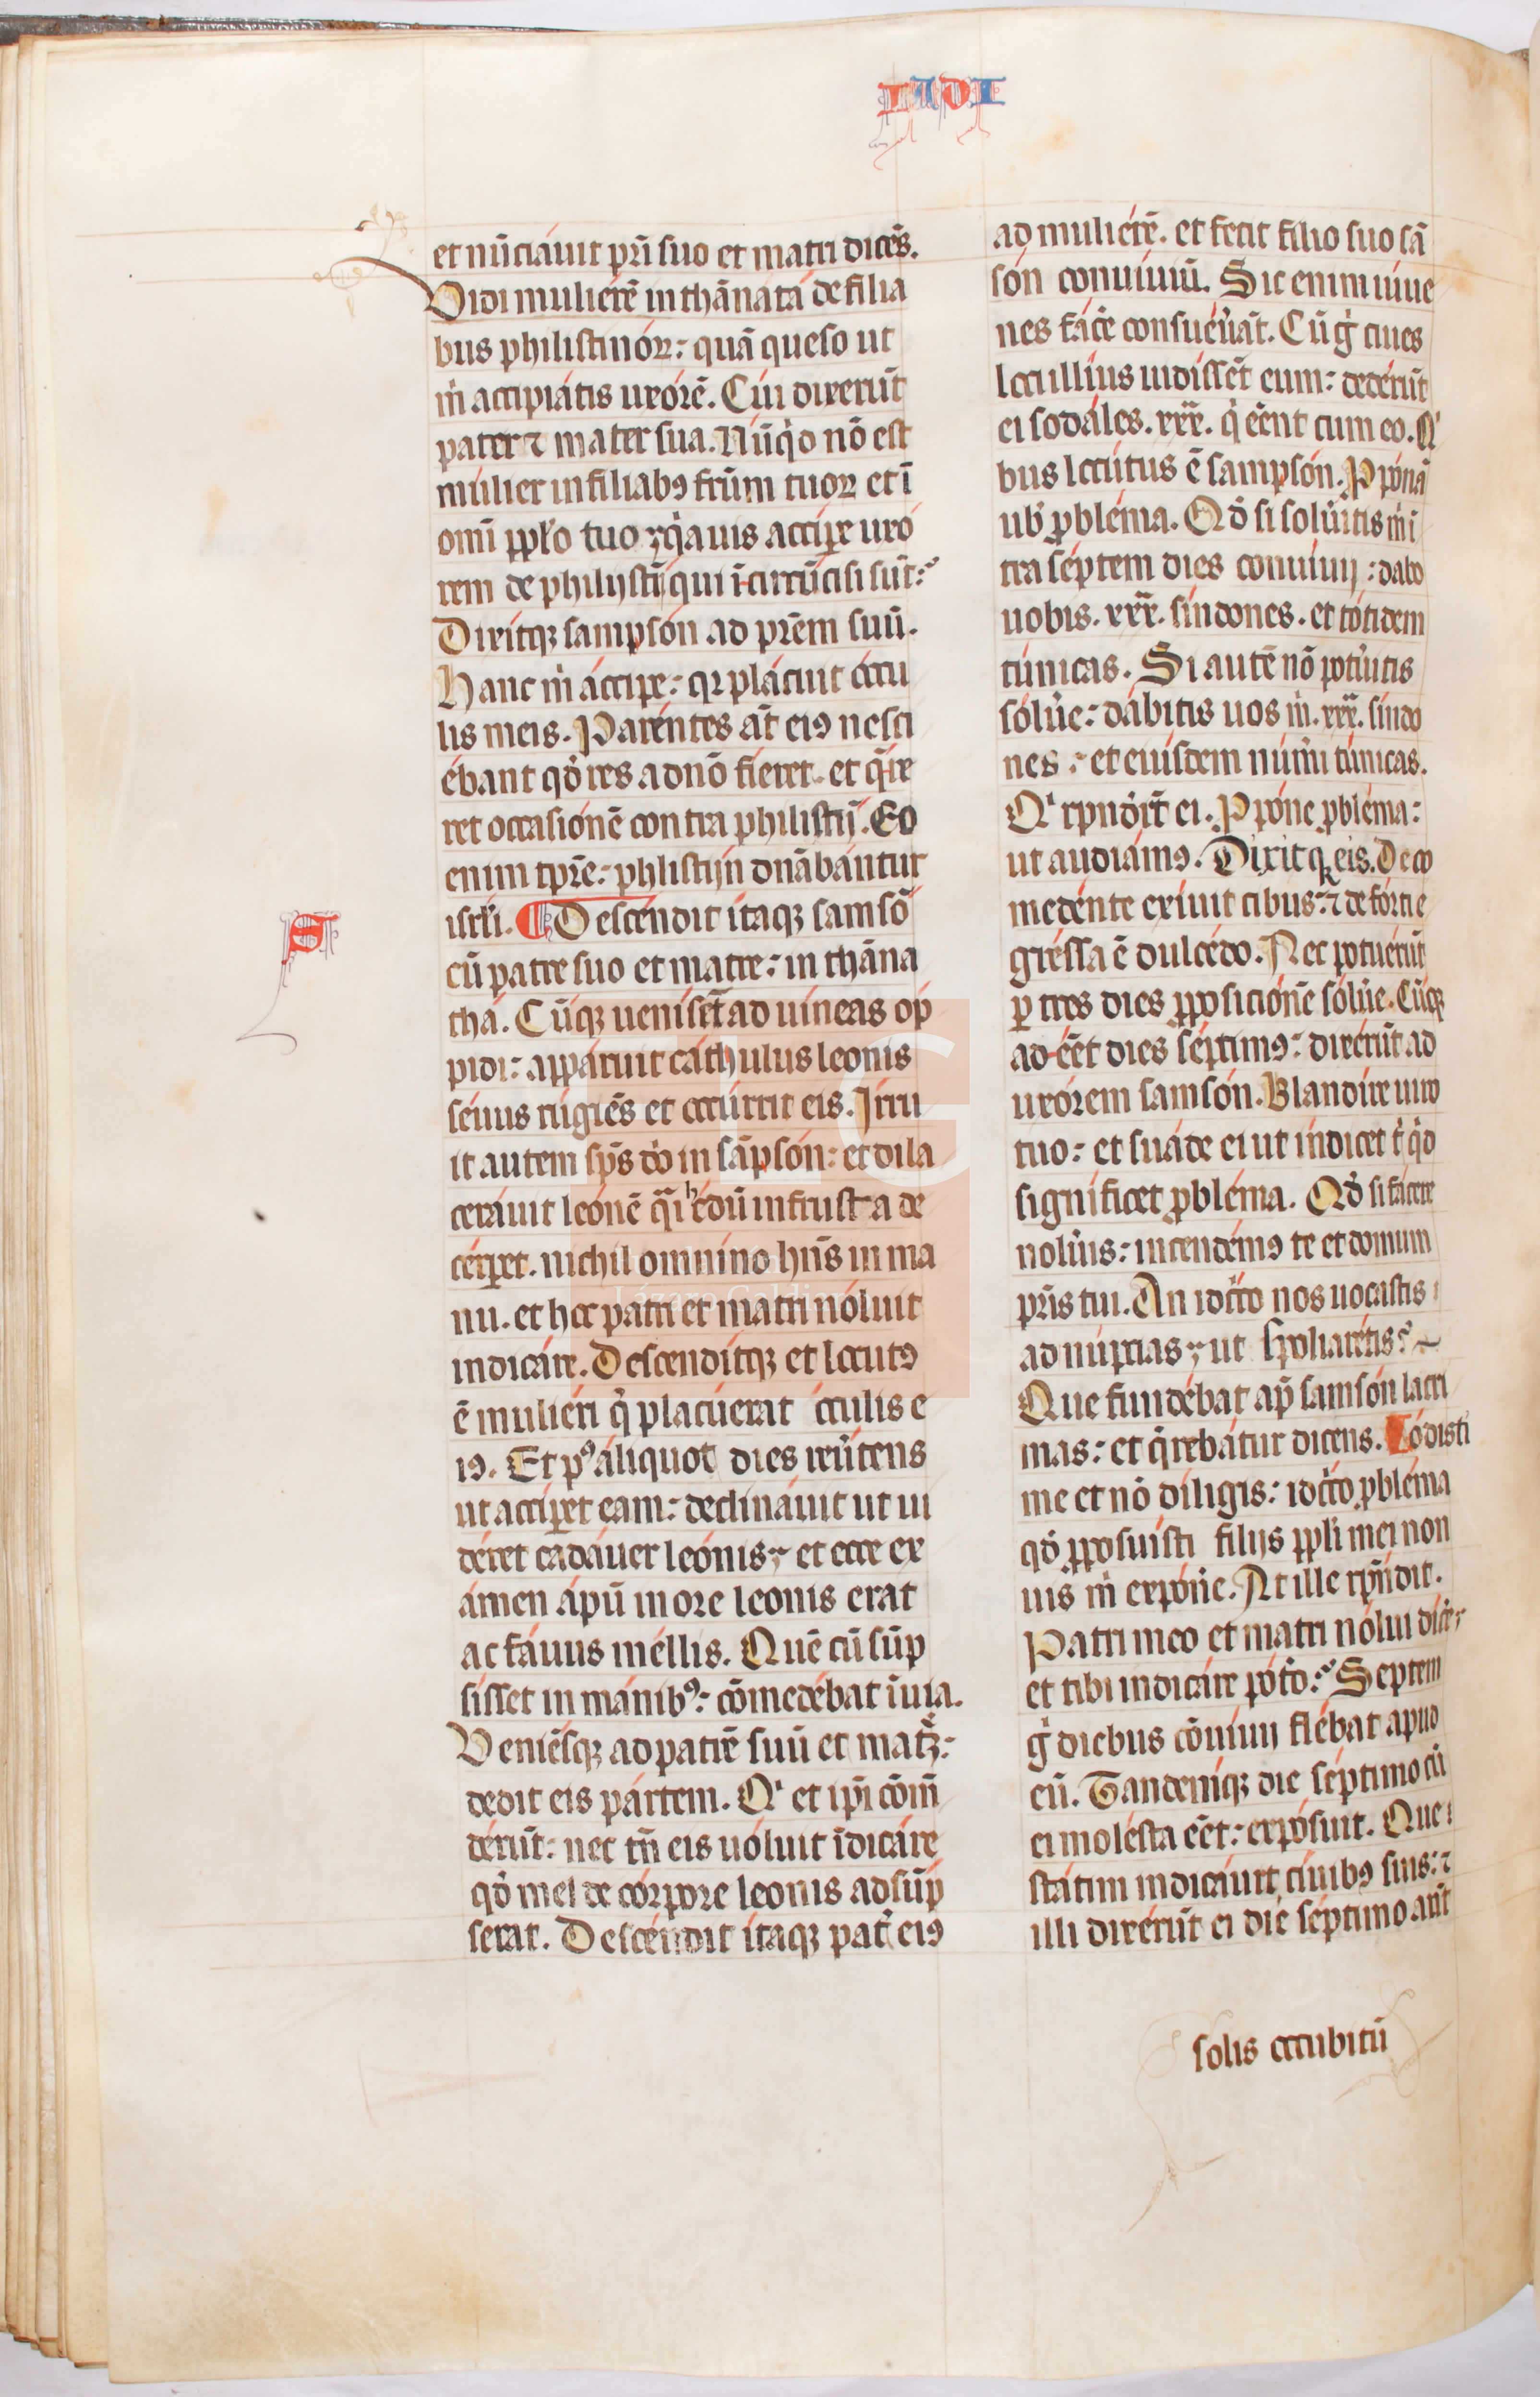 IUDI
et nūciauit pr̄i suo et matri dicēs.
Vidi mulierē in thānata de filia
bus philistinoꝝ: quā queso ut
m̄ accipiatis uxorē. Cui dixerūt
pater ⁊ mater sua. Nūqͥd nō est
mulier in filiabꝰ fr̄um tuoꝝ et ī
omī pp̄lo tuo qͥa uis accip̲e uxo
rem de philistī qui īcircūcisi sūt:
Dixitqꝫ sampson ad pr̄em suū.
Hanc m̄ accipe: qꝛ placuit occu
lis meis. Parentes at̄ eiꝰ nesci
ebant qd̓ res a dn̄o fieret. et q̄re
ret occasionē contra philistij. Eo
enim tp̄re: phlistijn dn̄abantur
isrl̄i. ¶ Descendit itaqꝫ samsō
cū patre suo et matre: in thāna
tha. Cūqꝫ uenisēt ad uineas op
pidi: apparuit cathulus leonis
seuus rugiēs et occurrit eis. Irru
it autem sp̄s dn̄i in sāpson: et dila
cerauit leonē q̄i hedū in frusta de
cerp̲et. nichil omnino hn̄s in ma
nu. et hoc patri et matri noluit
indicare. Descenditqꝫ et locutꝰ
ē mulieri q̄ placuerat occulis e
iꝰ. Et pꝰ aliquot dies reu̓tens
ut accip̲et eam: declinauit ut ui
deret cadauer leonis; et ecce ex
amen apū in ore leonis erat
ac fauus mellis. Quē cū sūp
sisset in manibꝰ: cōmedebat ī uia.
Veniēsqꝫ ad patrē suū et matꝫ:
dedit eis partem. Qͥ et ip̄i cōm̄
derūt: nec tn̄ eis uoluit īdicare
qd̓ mel de corpore leonis adsūp
serat. Descendit itaqꝫ pat̓ eiꝰ
S
ad mulierē. et fecit filio suo sā
son conuiuiū. Sic enim iuue
nes fac̓e consueu̓āt. Cūg̓ ciues
loci illius uidissēt eum: dederūt
ei sodales. xxx. qͥ eēnt cum eo. Qͥ
bus locutus ē sampson. Ꝓponā
ub̓ ꝓblema. Qd̓ si solu̓itis m̄ i
tra septem dies conuiuij: dabo
uobis. xxx. sindones. et totidem
tunicas. Si autē nō potu̓itis
solu̓e: dabitis uos m̄. xxx. sindo
nes: et eiusdem num̓i tunicas.
Qͥ rp̄nd̓ūt ei. Ꝓpone ꝓblema:
ut audiamꝰ. Dixitqꝫ eis. De co
medente exiuit cibus: ⁊ de forti e
gressa ē dulcedo. Nec potuerūt
p̲ tres dies ꝓposicionē solu̓e. Cūqꝫ
ad eēt dies septimꝰ: dixerūt ad
uxorem samson. Blandire uiro
tuo: et suade ei ut indicet tͥ qͥd
significet ꝓblema. Qd̓ si facere
nolu̓is: incendemꝰ te et domum
pr̄is tui. An idcͥco nos uocastis
ad nupcias; ut spoliaretis:
Que fundebat ap̄ samson lacri
mas: et q̄rebatur dicens. Odisti
me et nō diligis: idcͥco ꝓblema
qd̓ ꝓposuisti filijs pp̄li mei non
uis m̄ expon̓e. At ille rp̄ndit.
Patri meo et matri nolui dic̓e;
et tibi indicare pot̓o: Septem
g̓ diebus cōuiuij flebat apud
eū. Tandemqꝫ die septimo cū
ei molesta eēt: exposuit. Que
statim indicauit ciuibꝰ suis: ⁊
illi dixerūt ei die septimo an̄
solis occubitū